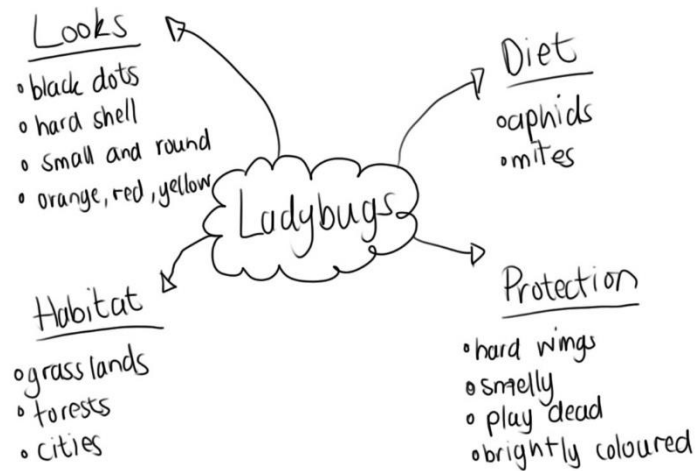 Looks
black dots
hard shell
small and round
orange, red, yellow
Diet
aphids
mites
Ladybugs
Habitat
grasslands
forests
cities
Protection
hard wings
smelly
play dead
brightly coloured